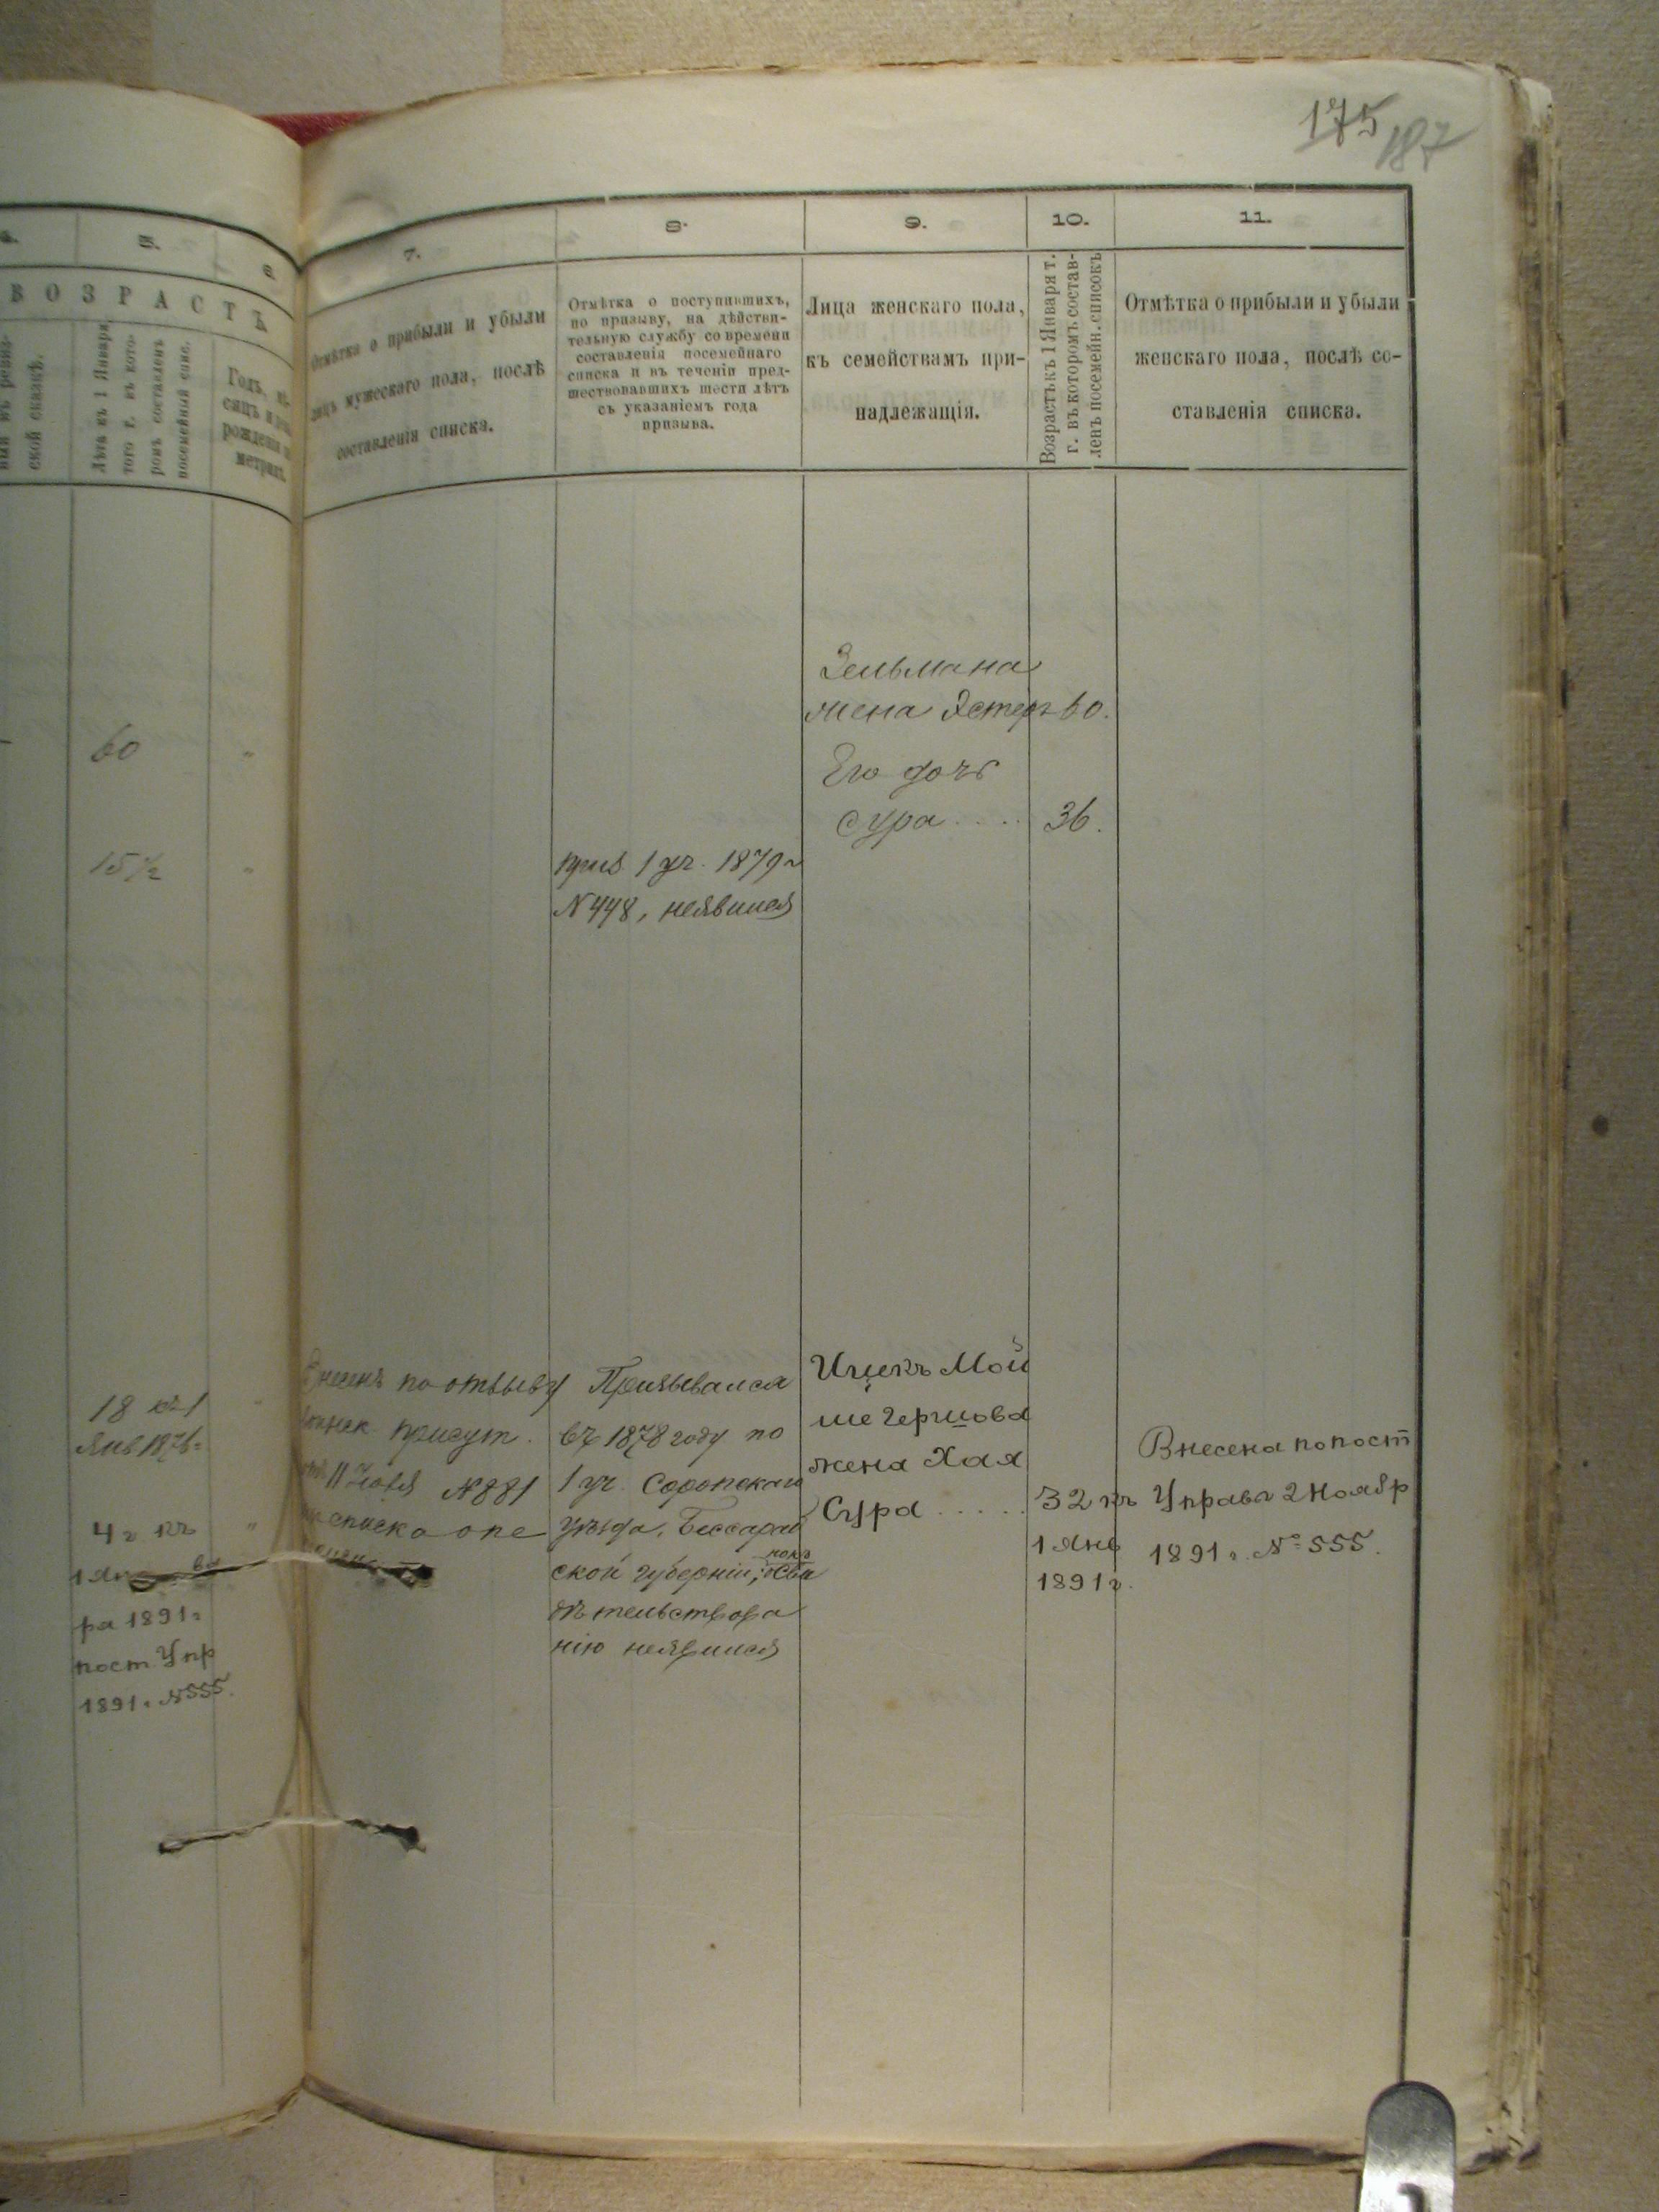 175
187
5.
6.
7.
8.
9.
10.
11.
ВОЗРАСТЪ
ской сказкѣ.
Лѣта къ 1 Января
того г. въ кото-
ромъ составленъ
посемейный спис.
Годъ, мѣ-
сяцъ и день
рожденія по
метрик.
Отмѣтка о прибыли и убыли
лицъ мужескаго пола, послѣ
составленія списка.
Отмѣтка о поступившихъ,
по призыву, на дѣйстви-
тельную службу со времени
составленія посемейнаго
списка и въ теченіи пред-
шествовавшихъ шести лѣтъ
съ указаніемъ года
призыва.
Лица женскаго пола,
къ семействамъ при-
надлежащія.
Возрастъ къ 1 Января т.
г. въ которомъ состав-
ленъ посемейн. списокъ
Отмѣтка о прибыли и убыли
женскаго пола, послѣ со-
ставленія списка.
Зельмана
жена Эстеръ 60.
60
Его дочь
Сура .... 36.
15½
приз. 1 уч. 1879 г
N 448, неявился
18 къ 1
Янв 1876 г
4 г къ
1 Янва
ра 1891 г
пост. Упр
1891 г N 555.
Внесенъ по отзыву
присут.
11 Іюля N 881
списка о пе
Призывался
въ 1878 году по
1 уч. Сорокскаго
уѣзда, Бессараб
ской губерніи,
дѣтельствова
нію неявился
Ицекъ Мой
ше Гершова
жена Хая
Сура .....
32 къ
1 Янв
1891 г.
Внесена по пост
Управы 2 Ноябр
1891 г. № 555.